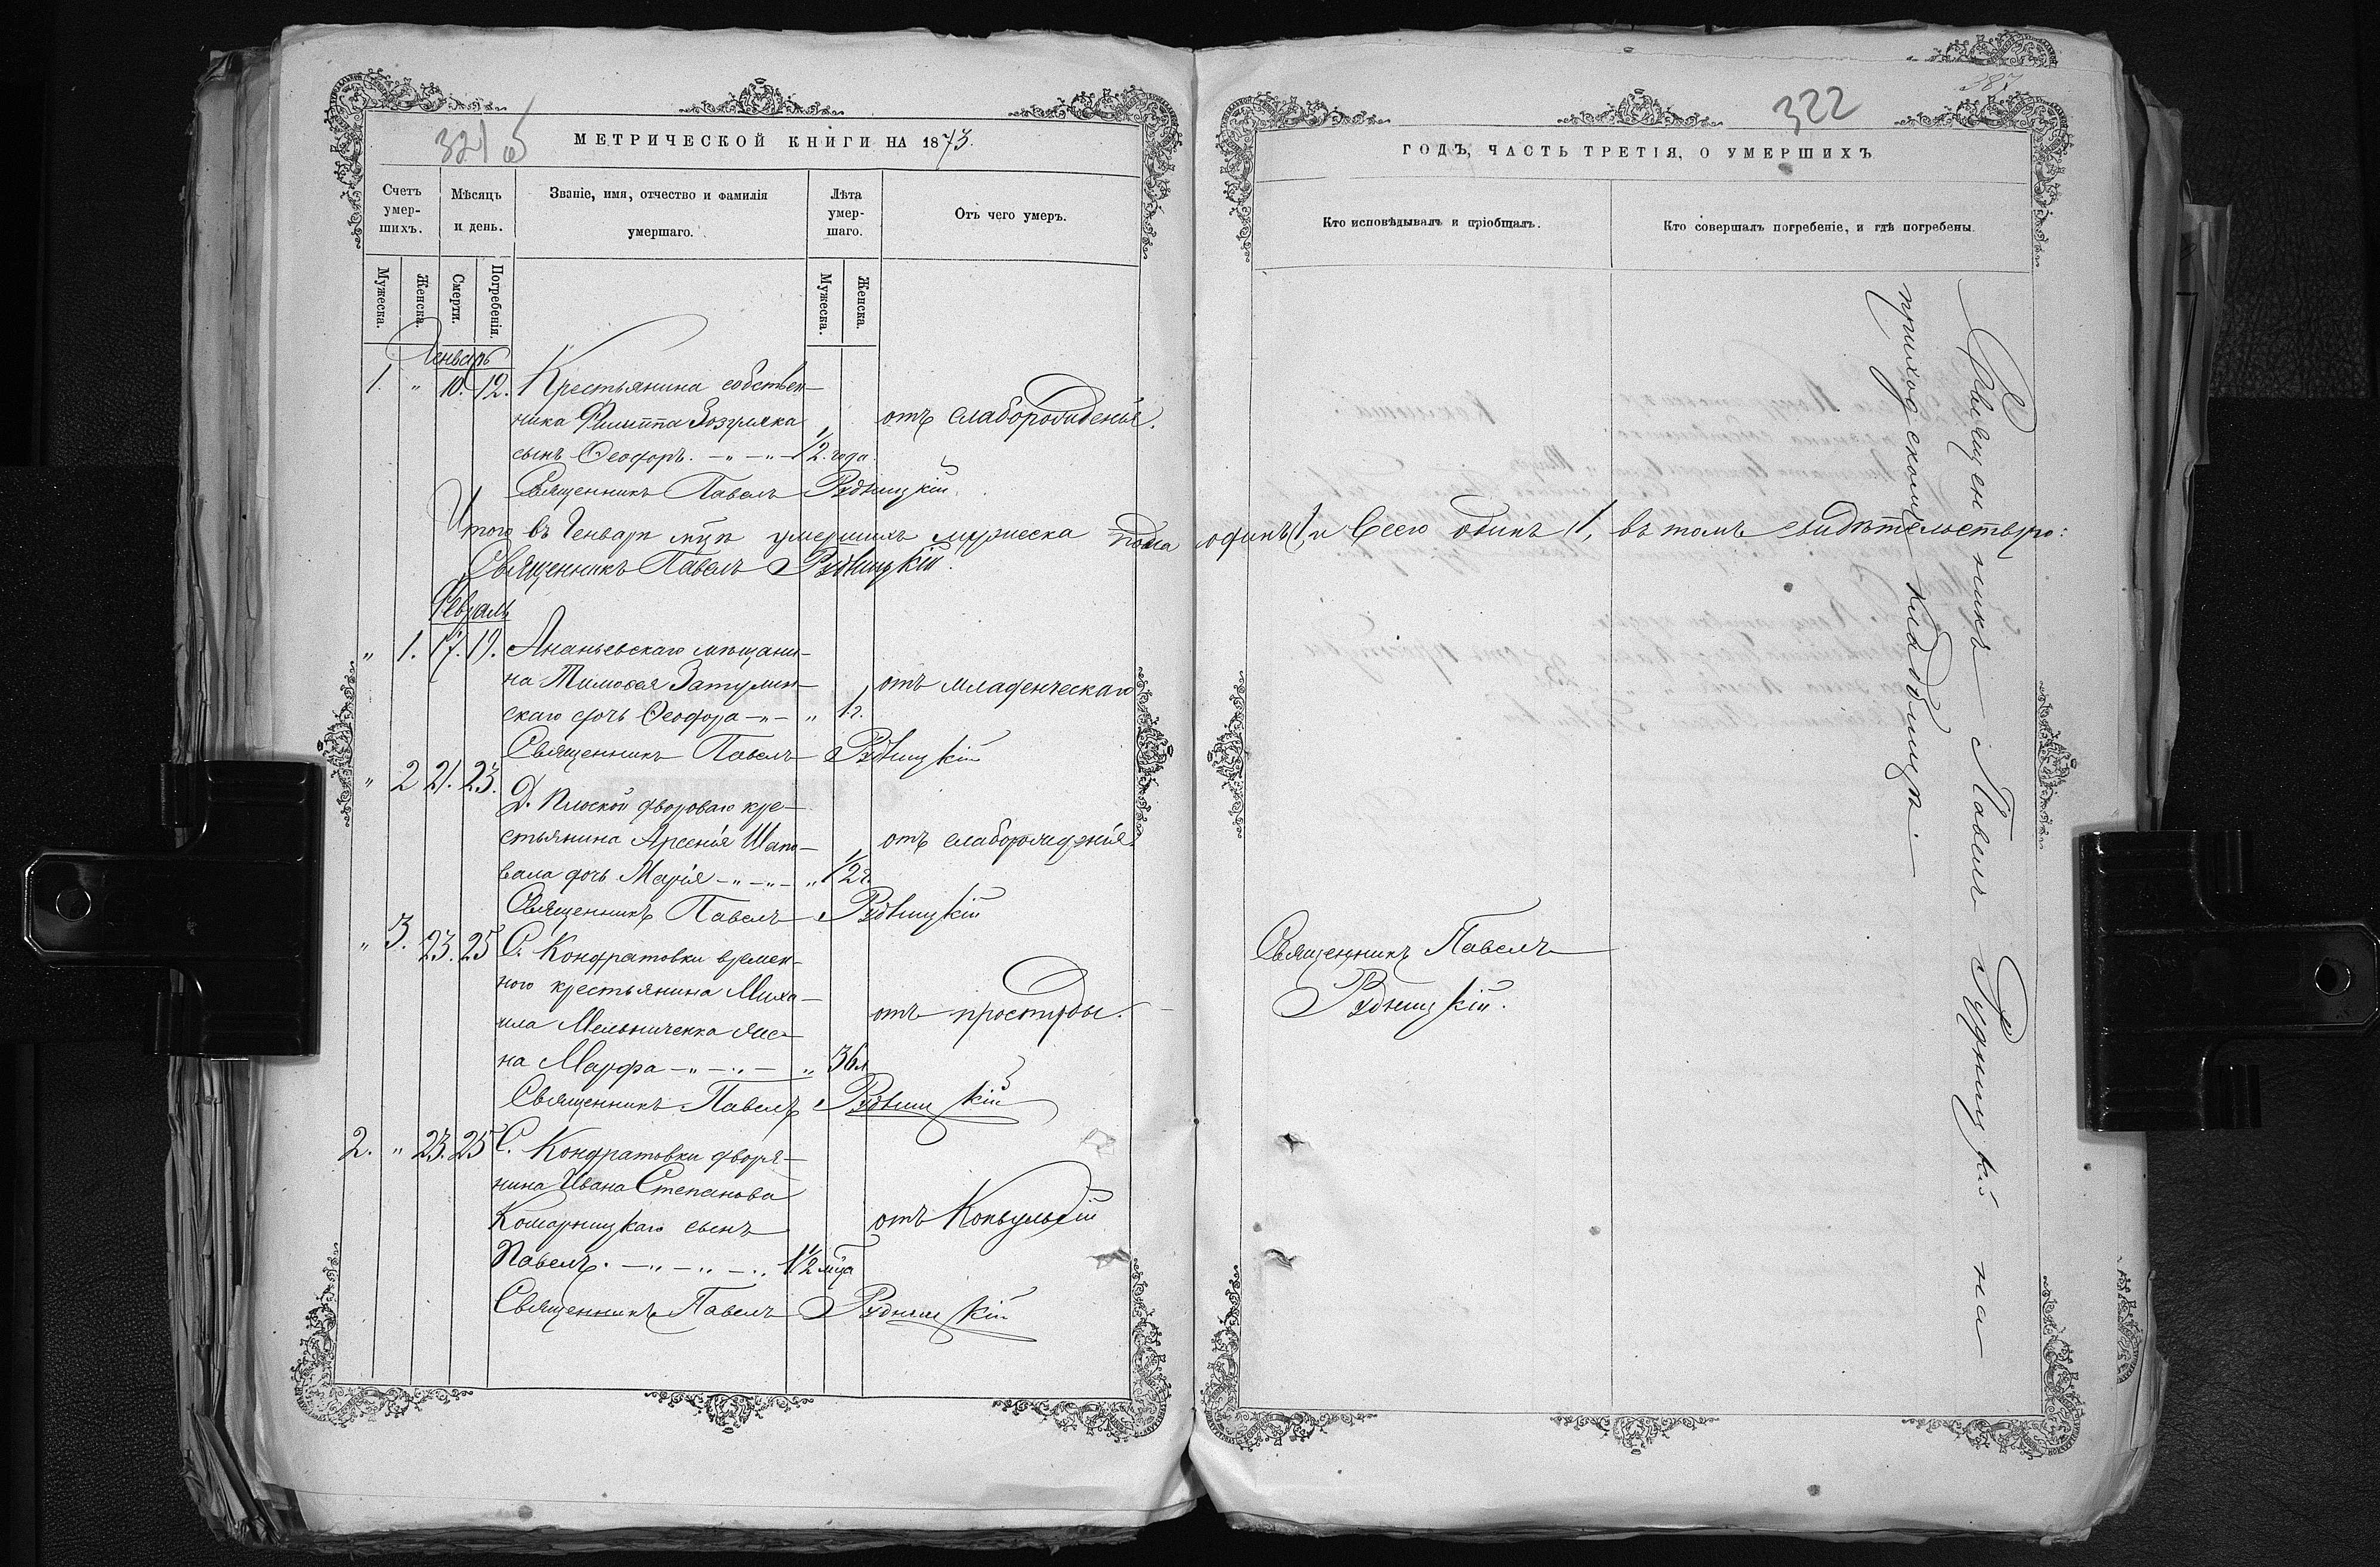 321 об
МЕТРИЧЕСКОЙ КНИГИ НА 1873.
Счетъ умер-шихъ.
Мѣсяцъ и день.
Званіе, имя, отчество и фамилія умершаго.
Лѣта умер-шаго.
Отъ чего умеръ.
Мужеска.
Женска.
Смерти.
Погребенія.
Мужеска.
Женска.
Генварь
1. " 10. 12. Крестьянина собствен-
ника Филиппа Зозуляка отъ слаборожденія.
сынъ Ѳеодоръ. 1/2. года.
Священникъ Павелъ Рудницкій.
Итого въ Генварѣ умершихъ мужеска пола одинъ 1, и всего одинъ 1, въ томъ свидѣтельствую:
Священникъ Павелъ Рудницкій.
Февраль
" 1. 17. 19. Ананьевскаго мѣщани-
на Тимоѳея Затулин- отъ младенческаго
скаго дочь Ѳеодора " 1 г.
Священникъ Павелъ Рудницкій
" 2 21. 23. Д. Плоской двороваго кре-
стьянина Арсенія Шапо- отъ слаборожденія
вала дочь Марія " 1/2 г.
Священникъ Павелъ Рудницкій
" 3. 23. 25 С. Кондратовки времен-
ного крестьянина Миха-
ила Мельниченка же- отъ простуды.
на Марфа " 36 л
Священникъ Павелъ Рудницкій
2. " 23. 25 С. Кондратовки дворя-
нина Ивана Степанова
Комарницкаго сынъ отъ Конвульсій
Павелъ. 1 1/2 мца
Священникъ Павелъ Рудницкій
322
387
ГОДЪ, ЧАСТЬ ТРЕТІЯ, О УМЕРШИХЪ
Кто исповѣдывалъ и пріобщалъ.
Кто совершалъ погребеніе, и гдѣ погребены.
Священникъ Павелъ
Рудницкій.
Священникъ Павелъ Рудницкій на
приходскомъ кладбищѣ.